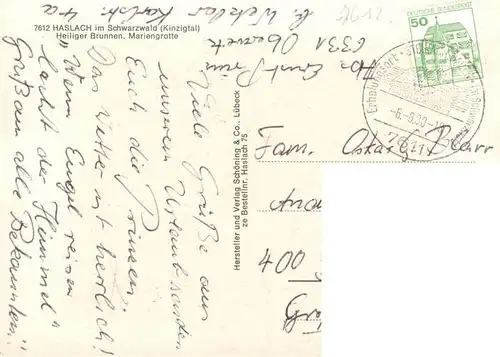 7612 HASLACH im Schwarzwald (Kinzigtal)
Heiliger Brunnen, Mariengrotte
Viele Grüße aus
unserem Urlaub senden
Euch die Prinsen!
Das Wetter ist herrlich!
"Wenn Engel reisen
lacht der Himmel"
Grüß an alle Bekannten!!
Hersteller und Verlag Schöning & Co., Lübeck
ze Bestellnr. Haslach 75
Abs. Ernst Prins
6331 Oberwetz
Kr. Wetzlar Karlstr. 4a
50
DEUTSCHE BUNDESPOST
Erholungsort
-6.-8.80-1
Fam. Oskar
400